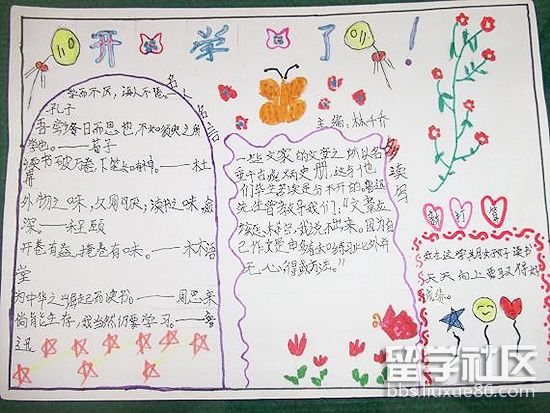 开学了!
名人名言
学而不厌，诲人不倦。——
孔子
吾尝终日而思也，不如须臾之所
学也。——荀子
读书破万卷，下笔如有神。——杜
甫
外物之味，久则可厌；读书之味，愈
深。——程颐
开卷有益，掩卷有味。——林语
堂
为中华之崛起而读书。——周恩来
倘能生存，我当然仍要学习。——鲁
迅
主编：林
读写
一些文豪的文章之所以名
垂千古成为历史册，这与他
们毕生苦读是分不开的。鲁迅
先生曾教导我们，“文章应
该怎样写，我说不出来。因为自
己作文是由多看和练习，此外并
无心得或方法。”
新打算
我在这学期好好读书
天天向上争取得好
成绩。
留学社区
bbs.liuxue86.com